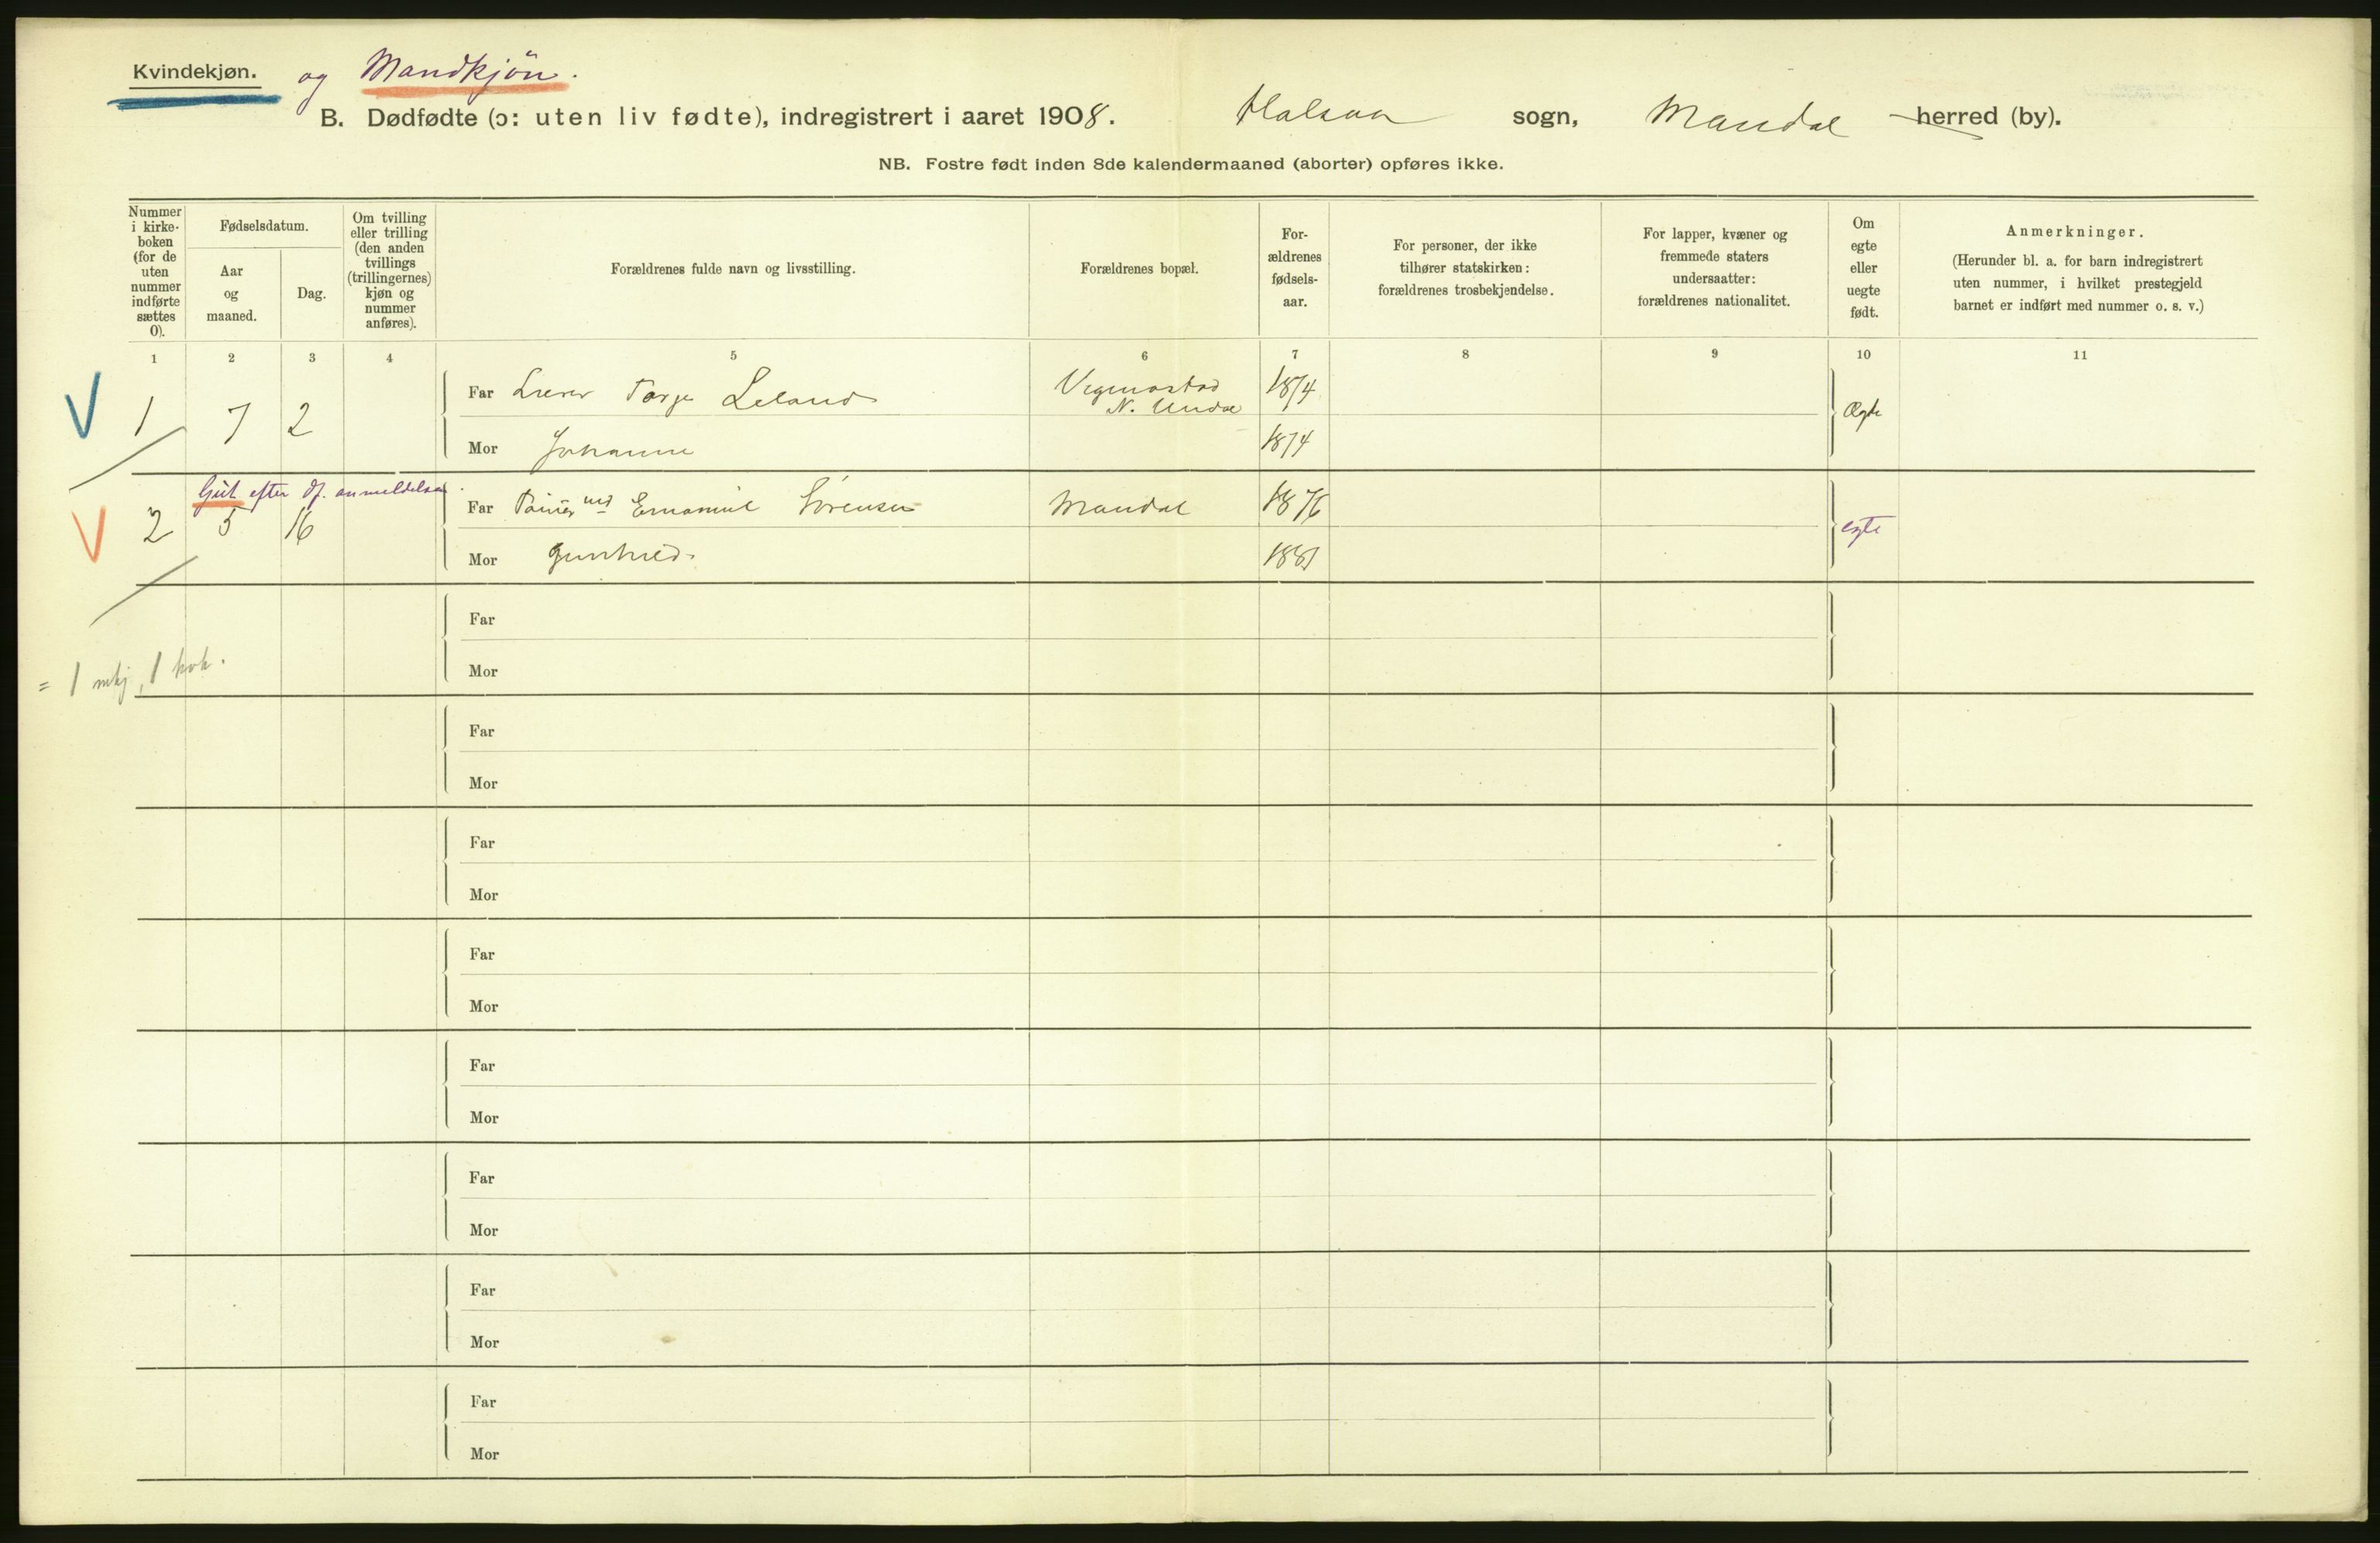 Kvindekjøn. og Mandkjön.
B. Dødfødte (ɔ: uten liv fødte), indregistrert i aaret 1908. Halsaa sogn, Mandal herred (by).
NB. Fostre født inden 8de kalendermaaned (aborter) opføres ikke.
Nummer i kirke-boken (for de uten nummer indførte sættes 0).
Fødselsdatum.
Aar og maaned.
Dag.
Om tvilling eller trilling (den anden tvillings (trillingernes) kjøn og nummer anføres).
Forældrenes fulde navn og livsstilling.
Forældrenes bopæl.
For-ældrenes fødsels-aar.
For personer, der ikke tilhører statskirken: forældrenes trosbekjendelse.
For lapper, kvæner og fremmede staters undersaatter: forældrenes nationalitet.
Om egte eller uegte født.
Anmerkninger.
(Herunder bl. a. for barn indregistrert uten nummer, i hvilket prestegjeld barnet er indført med nummer o. s. v.)
1 2 3 4 5 6 7 8 9 10 11
V 1 7 2 Far Lærer Torje Leland Vigmostad N. Undal 1874 Ægte
Mor Johanne 1874
Gut efter df. anmeldelsen.
V 2 5 16 Far Emanuel Sørensen Mandal 1876 egte
Mor Gunhild 1881
Far
= 1 mkj, 1 kvk.
Mor
Far
Mor
Far
Mor
Far
Mor
Far
Mor
Far
Mor
Far
Mor
Far
Mor